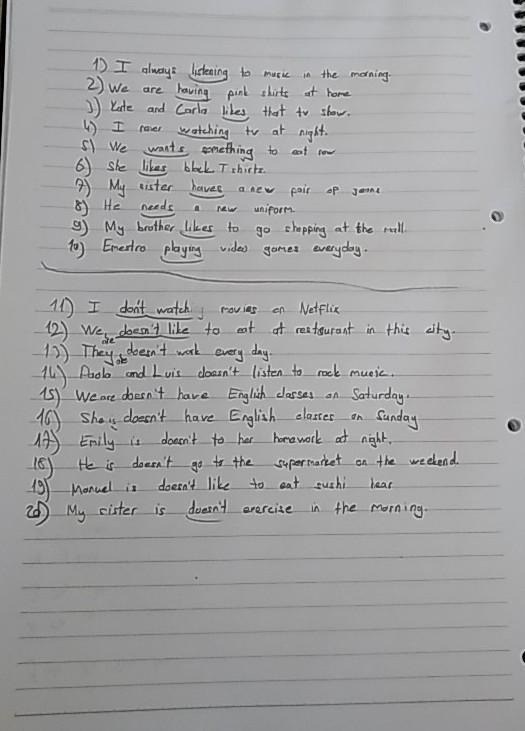 1) I always listening to music in the morning.
2) We are having pink shirts at home
3) Kate and Carla likes that tv show.
4) I never watching tv at night.
5) We wants something to eat now
6) She likes black T shirts.
7) My sister haves a new pair of jeans
8) He needs a new uniform.
9) My brother likes to go shopping at the mall.
10) Ernestro playing video games everyday.
11) I don't watch movies on Netflix
12) We doesn't like to eat at restaurant in this city.
13) They are doesn't work every day.
14) Paolo and Luis doesn't listen to rock music.
15) We are doesn't have English classes on Saturday.
16) She is doesn't have English classes on Sunday
17) Emily is doesn't to her homework at night.
18) He is doesn't go to the supermarket on the weekend.
19) Manuel is doesn't like to eat sushi hear
20) My sister is doesn't exercise in the morning.